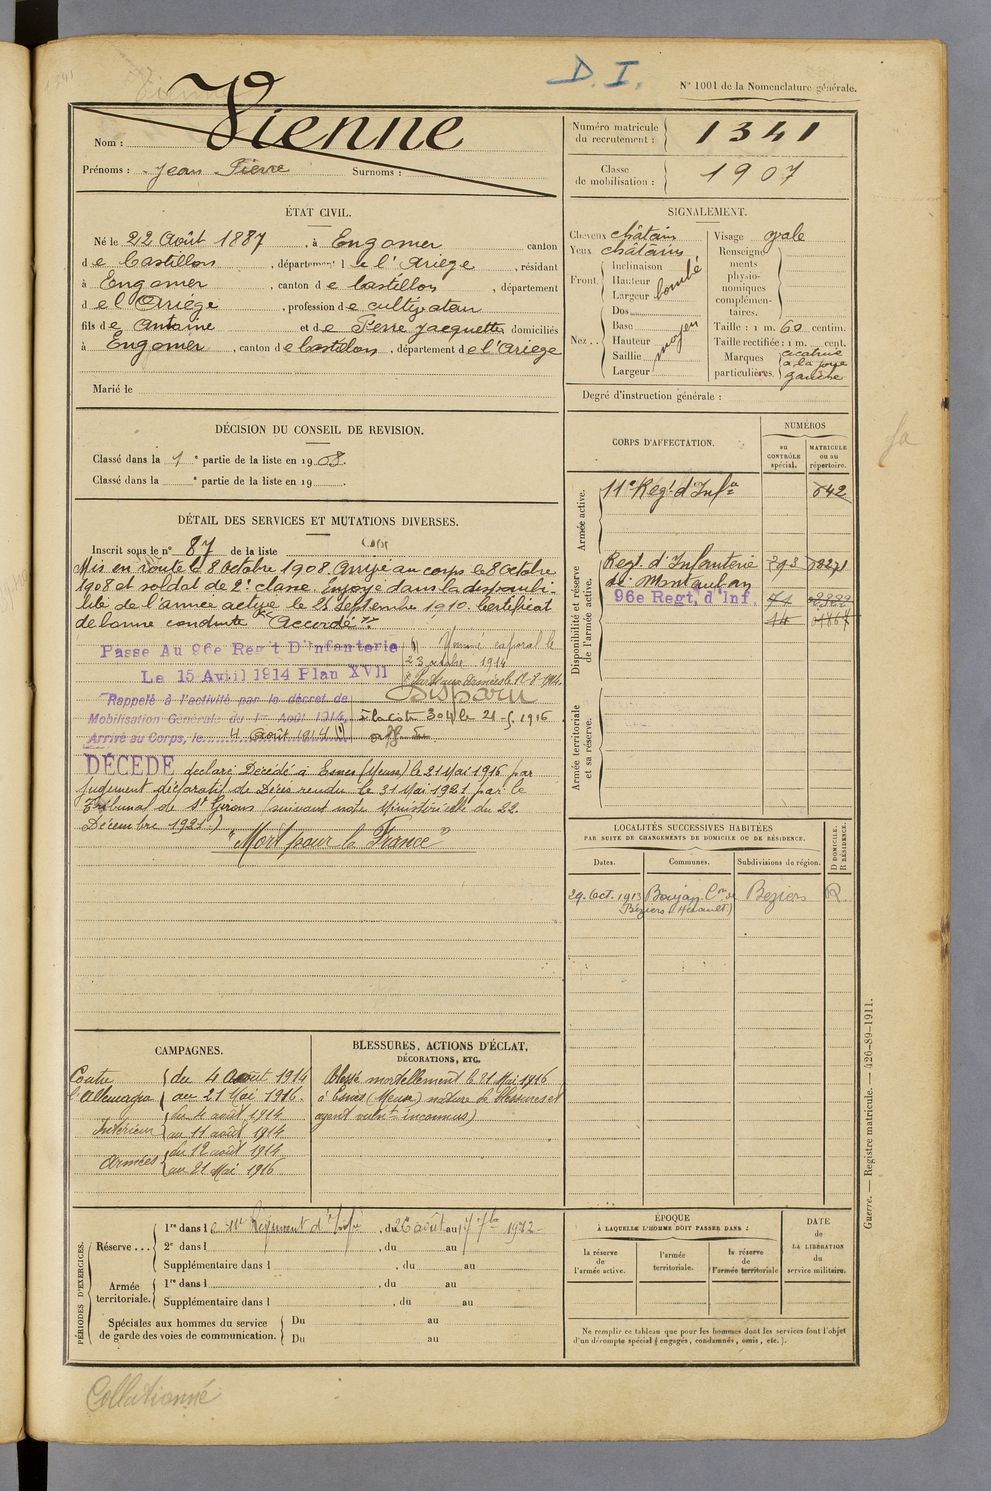 D. I.
N° 1001 de la Nomenclature générale.
Vienne
Nom :
Prénoms : Jean Pierre Surnoms :
Numéro matricule du recrutement : 1341
Classe de mobilisation : 1907
ÉTAT CIVIL.
Né le 22 Août 1887, à Engomer canton
de Castillon, département de l'Ariège, résidant
à Engomer, canton de Castillon, département
de l'Ariége, profession de cultivateur
fils de Antoine et de Perre Jacquette domiciliés
à Engomer, canton de Castillon, département de l'Ariège
Marié le
SIGNALEMENT.
Cheveux châtain
Yeux châtains
Front
Inclinaison
Hauteur
Largeur
bombé
Nez
Dos
Base
Hauteur
Saillie
Largeur
moyen
Visage ovale
Renseignements physionomiques complémentaires.
Taille : 1 m. 60 centim.
Taille rectifiée : 1 m. cent.
Marques particulières.
cicatrice
à la joue
gauche
Degré d'instruction générale :
DÉCISION DU CONSEIL DE REVISION.
Classé dans la 1e partie de la liste en 1908.
Classé dans la e partie de la liste en 19 .
DÉTAIL DES SERVICES ET MUTATIONS DIVERSES.
Inscrit sous le n° 87 de la liste
Mis en route le 8 Octobre 1908. Arrivé au corps le 8 Octobre
1908 et soldat de 2e classe. Envoyé dans la disponibi-
lité de l'armée active le 25 Septembre 1910. Certificat
de bonne conduite "Accordé".
Passé Au 96e Reg't D'Infanterie
Le 15 Avril 1914 Plan XVII
(1) Nommé caporal le
23 octobre 1914
Disparu
Rappelé à l'activité par le décret de
Mobilisation Générale du 1er Août 1914,
Arrivé au Corps, le 4 Août 1914 (1)
à la côte 304 le 21-5 1916
DÉCÉDÉ déclaré Décédé à Esnes (Meuse) le 21 Mai 1916 par
jugement déclaratif de Décès rendu le 31 Mai 1921 par le
Tribunal de St Girons (suivant note Ministérielle du 22
Décembre 1921.)
"Mort pour la France"
CORPS D'AFFECTATION.
NUMÉROS
au CONTRÔLE spécial.
MATRICULE ou au répertoire.
Armée active.
11e Regt d'Infie 642
Disponibilité et réserve de l'armée active.
Regt. d'Infanterie
de Montauban
96e Regt, d'Inf.
Armée territoriale et sa réserve.
LOCALITÉS SUCCESSIVES HABITÉES
PAR SUITE DE CHANGEMENTS DE DOMICILE OU DE RÉSIDENCE.
Dates. Communes. Subdivisions de région. D DOMICILE. R RÉSIDENCE.
29. Oct. 1913 Boujan Con de Beziers R.
Béziers (Hérault)
CAMPAGNES.
Contre l'Allemagne
du 4 Août 1914
au 21 Mai 1916.
Intérieur
du 4 août 1914
au 11 août 1914
Armées
du 12 août 1914
au 21 Mai 1916
BLESSURES, ACTIONS D'ÉCLAT,
DÉCORATIONS, ETC.
Blessé mortellement le 21 Mai 1916
à Esnes (Meuse) nature de blessures et
agent vulnt inconnus)
PÉRIODES D'EXERCICES.
Réserve ...
1re dans le 11e Régiment d'Infie, du 26 août au 17 7bre 1912
2e dans l , du au
Supplémentaire dans l , du au
Armée territoriale.
1re dans l , du au
Supplémentaire dans l , du au
Spéciales aux hommes du service de garde des voies de communication.
Du au
Du au
ÉPOQUE
À LAQUELLE L'HOMME DOIT PASSER DANS :
la réserve de l'armée active.
l'armée territoriale.
la réserve de l'armée territoriale
DATE de LA LIBÉRATION du service militaire.
Ne remplir ce tableau que pour les hommes dont les services font l'objet
d'un décompte spécial (engagés, condamnés, omis, etc.).
Guerre. — Registre matricule. — 426-89-1911.
Collationné